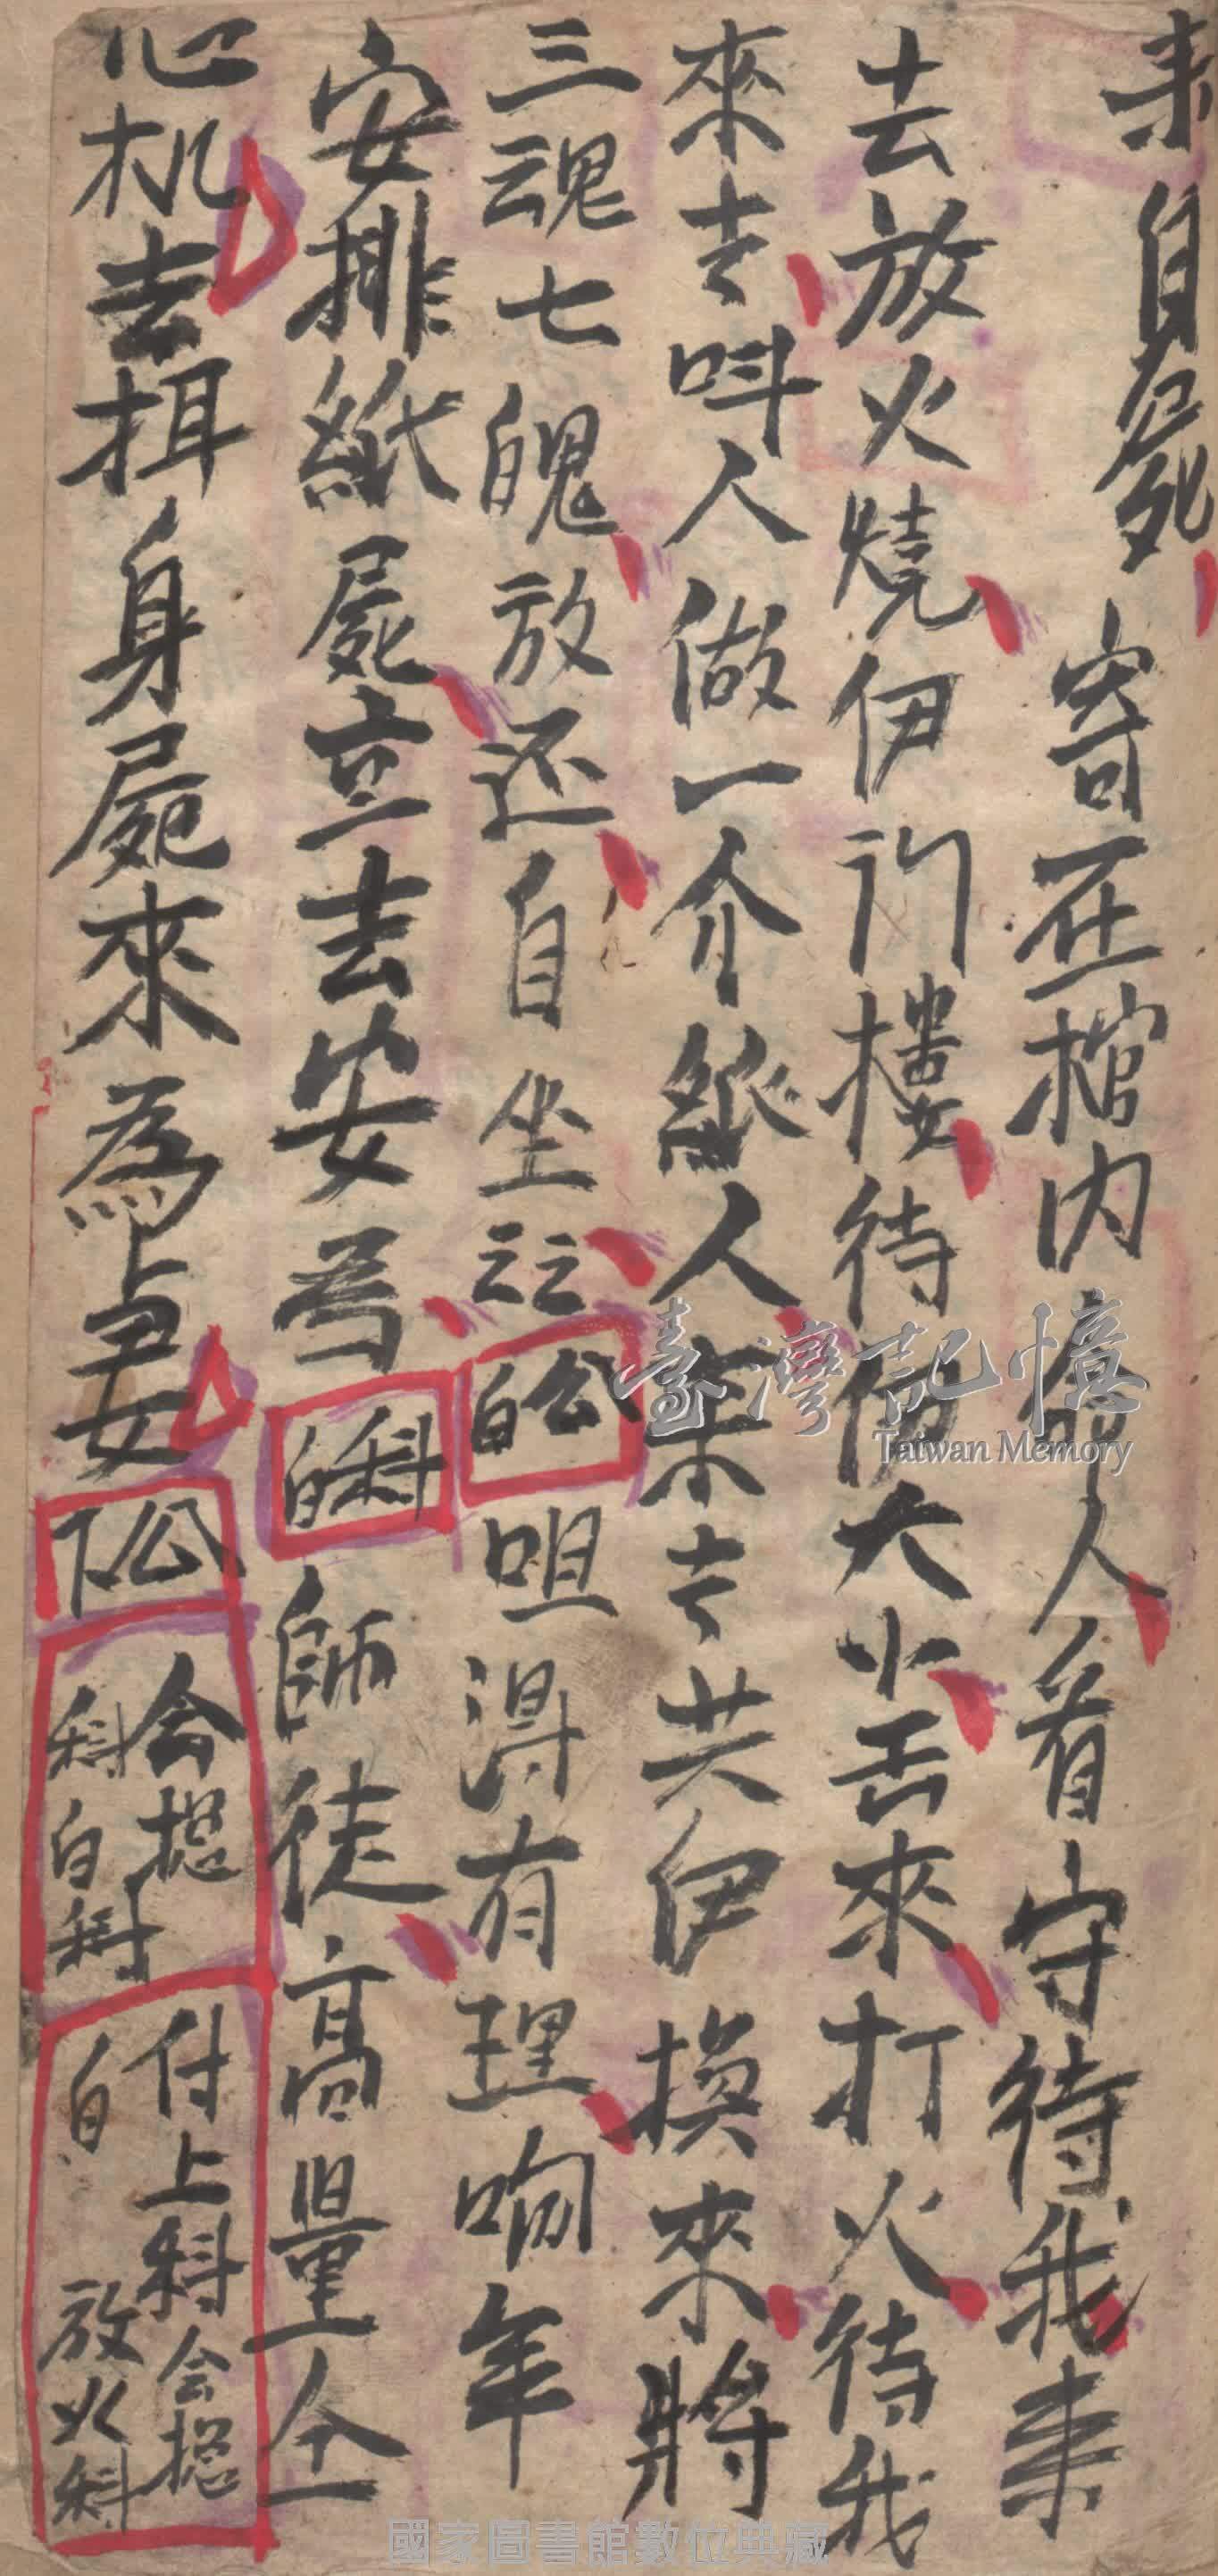 来自屍寄在棺內命人看守待我来
去放火燒伊门樓待伊大火去來打火待我
來去呌人做一介紙人来去共伊換來將
三魂七魄放还自坐云云 公白 咀淂有理吻年
安排紙屍立去安為 科白 師徒高量仝
心机去挕身屍來為上妻 公下 会挸科白科 付上科会挸白放火科
臺灣記憶
Taiwan Memory
國家圖書館數位典藏